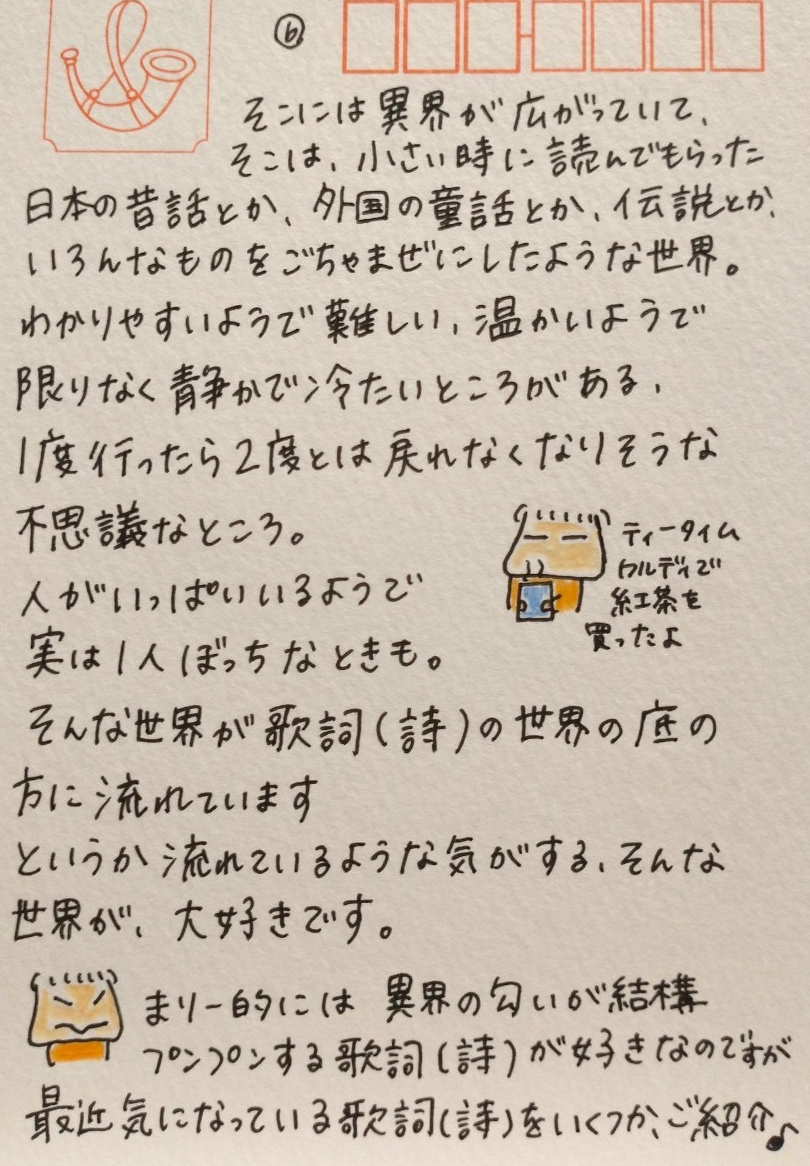 ⑥
そこには異界が広がっていて、
そこは、小さい時に読んでもらった
日本の昔話とか、外国の童話とか、伝説とか、
いろんなものをごちゃまぜにしたような世界。
わかりやすいようで難しい、温かいようで
限りなく静かで冷たいところがある、
1度行ったら2度とは戻れなくなりそうな
不思議なところ。
ティータイム
カルディで
紅茶を
買ったよ
人がいっぱいいるようで
実は1人ぼっちなときも。
そんな世界が歌詞(詩)の世界の底の
方に流れています
というか流れているような気がする、そんな
世界が、大好きです。
まりー的には異界の匂いが結構
プンプンする歌詞(詩)が好きなのですが
最近気になっている歌詞(詩)をいくつか、ご紹介♪